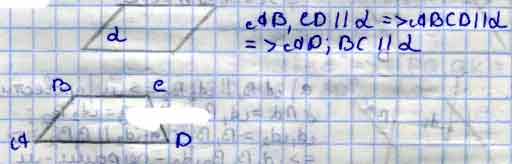 α
AB, CD || α => ABCD || α
=> AD; BC || α
B C
A D